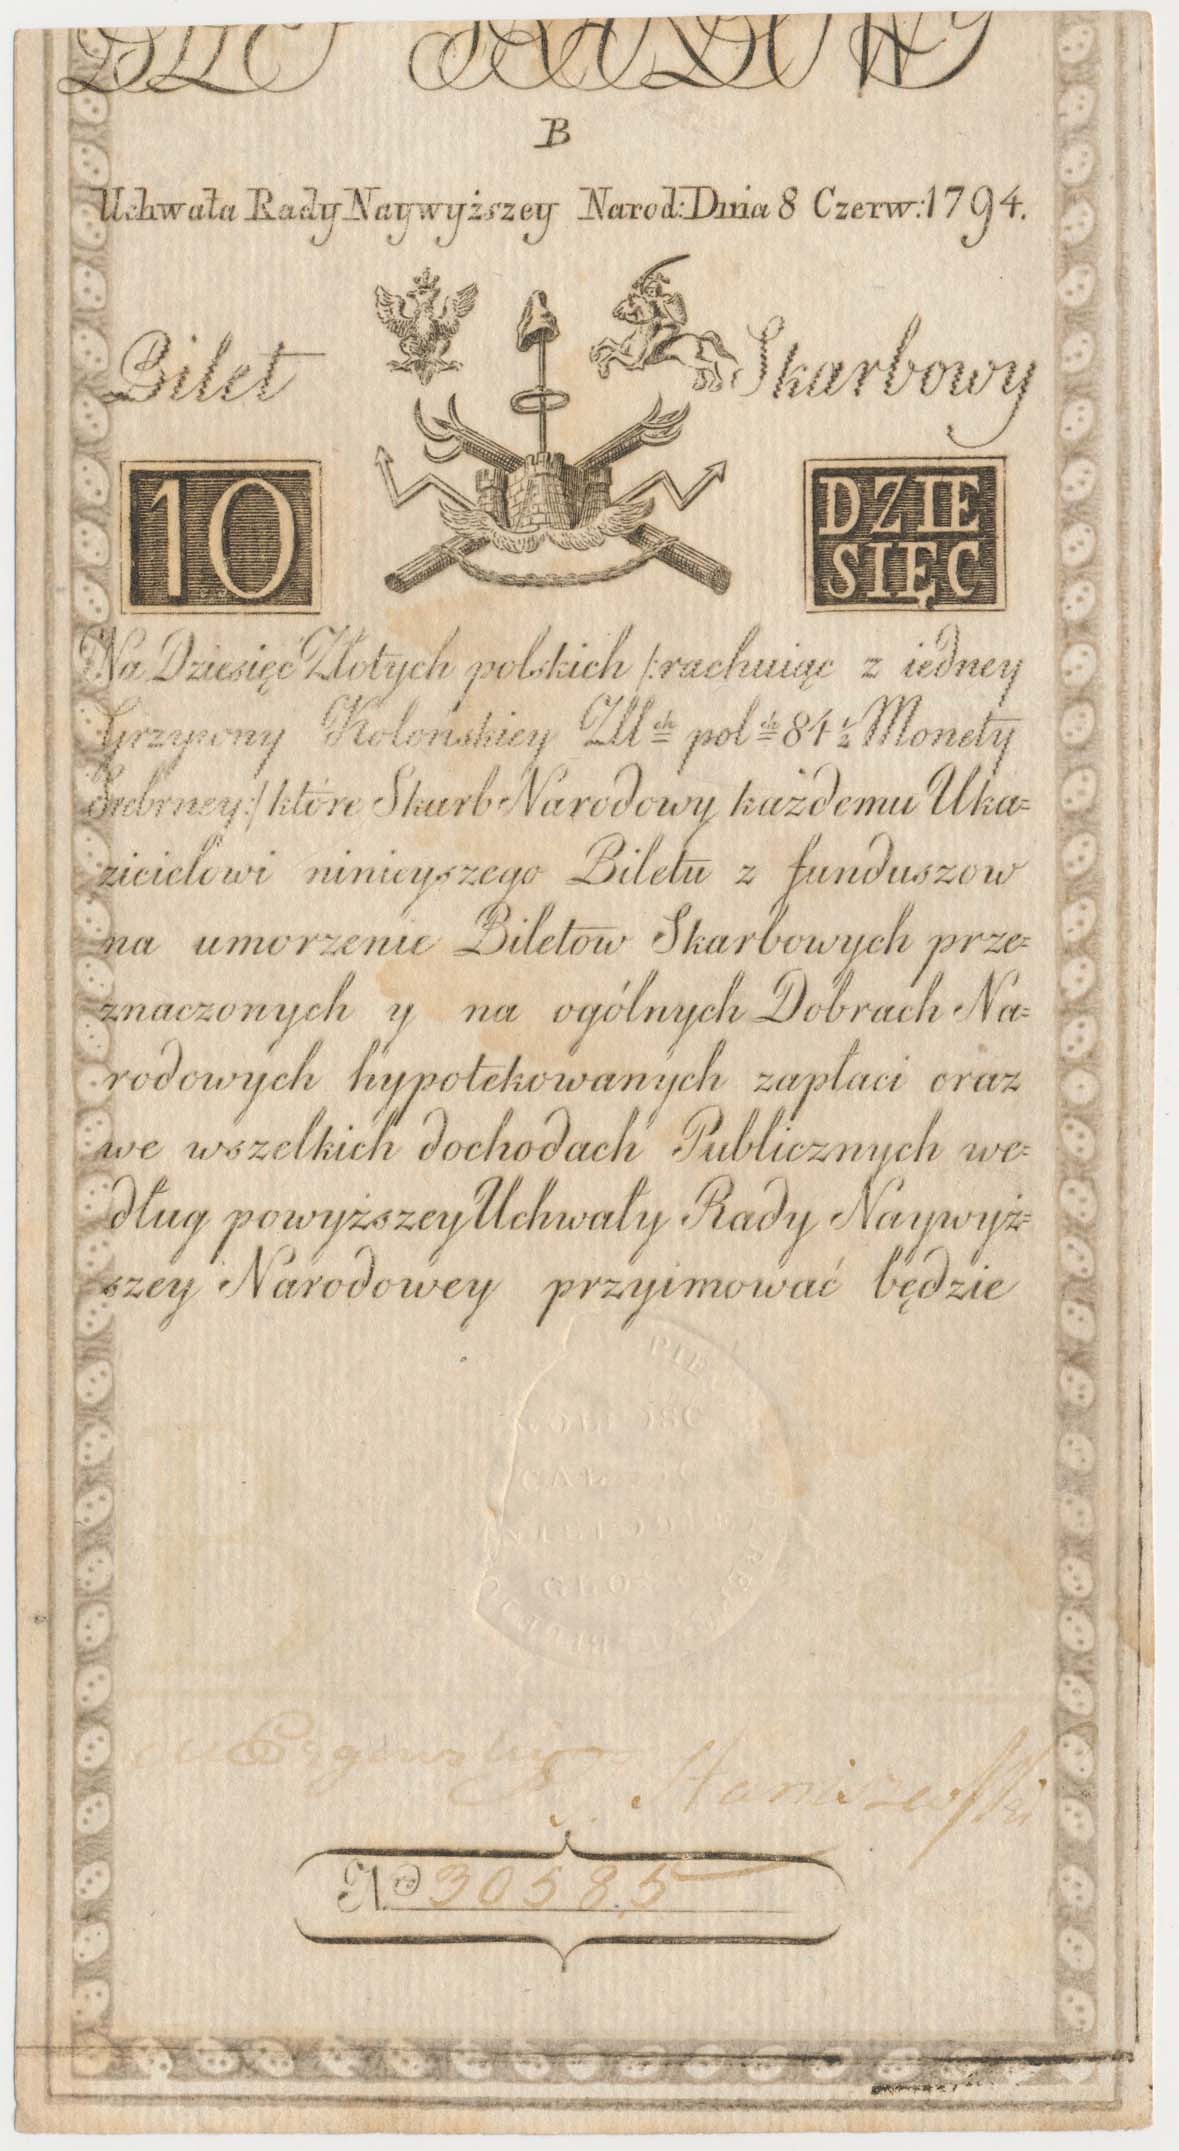 B
Uchwała Rady Naywyższey Narod: Dnia 8 Czerw: 1794.
Bilet Skarbowy
10
DZIE
SIĘC
Na Dziesięć Złotych polskich /: rachuiąc z iedney
Grzywny Kolońskiey Złł ch pol ch 84 1/2 Monety
Srebrney :/ które Skarb Narodowy każdemu Uka=
zicielowi ninieyszego Biletu z funduszow
na umorzenie Biletow Skarbowych prze=
znaczonych y na ogólnych Dobrach Na=
rodowych hypotekowanych zapłaci oraz
we wszelkich dochodach Publicznych we=
dług powyższey Uchwały Rady Naywyż=
szey Narodowey przyimować będzie
Staniszewski
Nro 30585